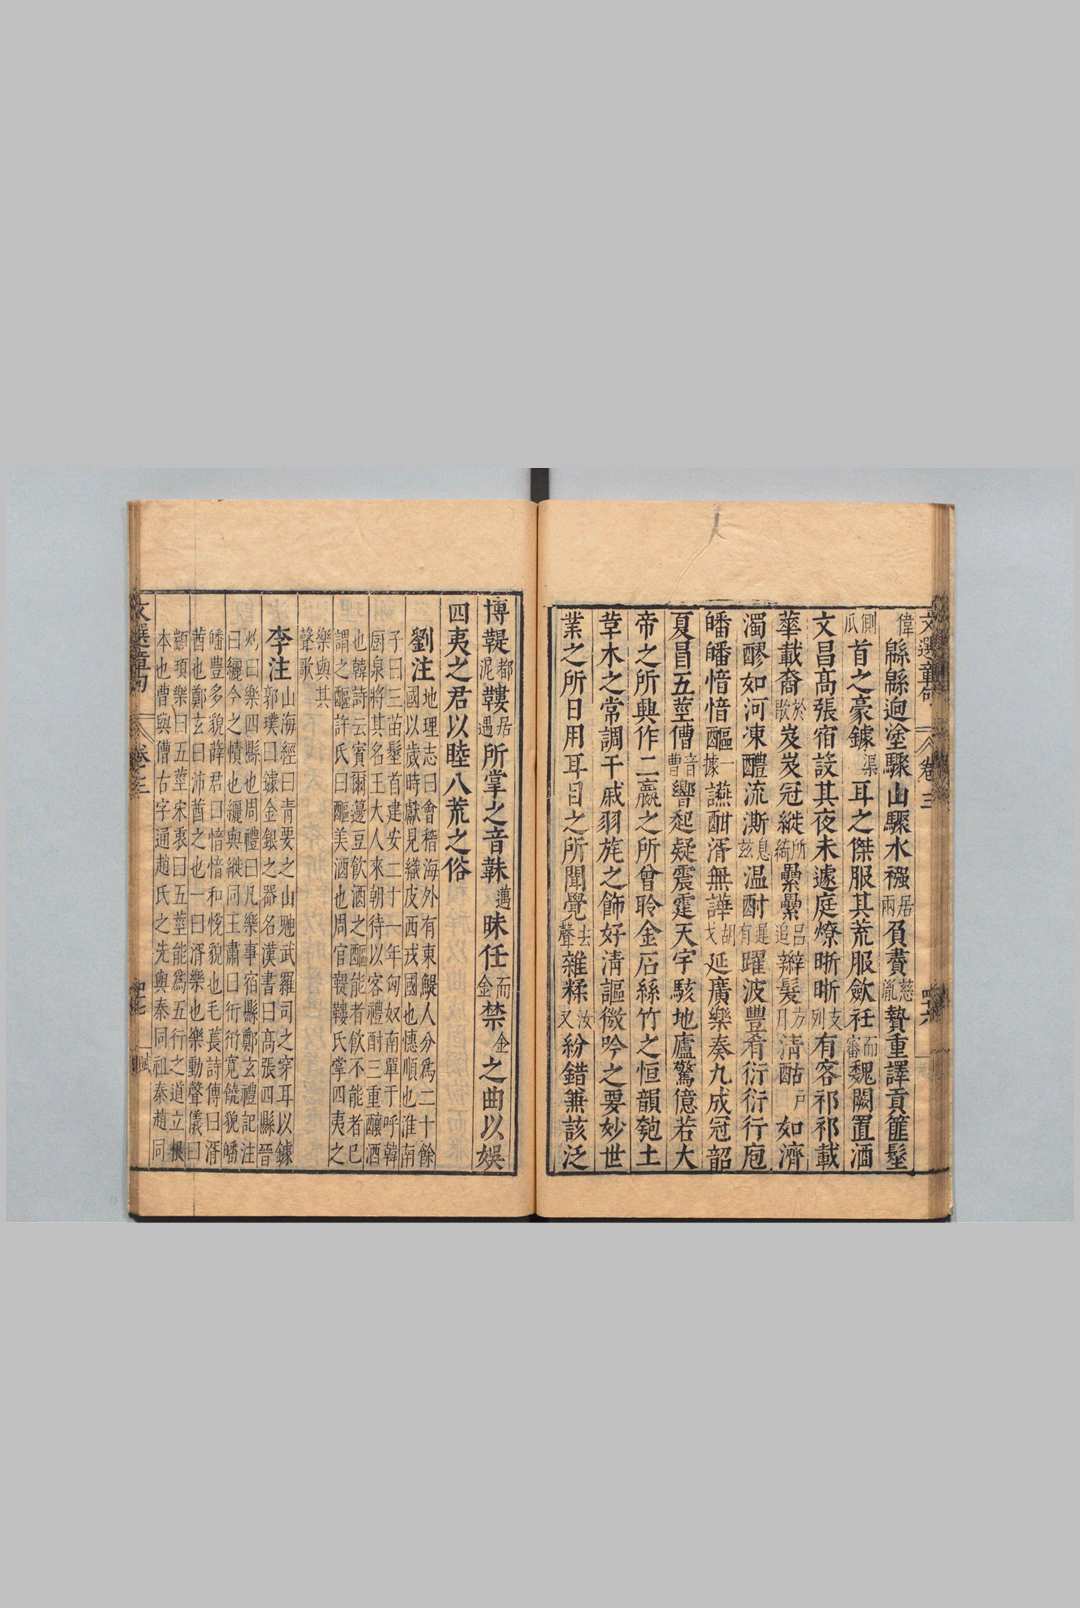 偉
緜緜迥塗驟山驟水襁居兩負賮慈胤贄重譯貢篚髽
側瓜首之豪鐻渠耳之傑服其荒服歛衽而審魏闕置酒
文昌高張宿設其夜未遽庭燎晣晣支列有客祁祁載
華載裔於歇岌岌冠縰所綺纍纍呂追辮髮方月清酤戶如濟
濁醪如河凍醴流澌息茲温酎遲有躍波豐肴衍衍行庖
皤皤愔愔醧一據讌酣湑無譁胡戈延廣樂奏九成冠韶
夏冒五莖傮音曹響起疑震霆天宇駭地廬驚億若大
帝之所興作二嬴之所曾聆金石絲竹之恒韻匏土
草木之常調干戚羽旄之飾好清謳微吟之要妙世
業之所日用耳目之所聞覺去聲雜糅汝又紛錯兼該泛
文選章句 卷三 四十六
博鞮都泥鞻居遇所掌之音韎邁昧任而金禁金之曲以娛
四夷之君以睦八荒之俗
劉注地理志曰會稽海外有東鯷人分爲二十餘
國以歲時獻見織皮西戎國也憓順也淮南
子曰三苗髽首建安二十一年匈奴南單于呼韓
厨泉將其名王大人來朝待以客禮酎三重釀酒
也韓詩云賓爾籩豆飲酒之醧能者飲不能者已
謂之醧許氏曰醧美酒也周官鞮鞻氏掌四夷之
樂與其
聲歌
李注山海經曰青要之山䰠武羅司之穿耳以鐻
郭璞曰鐻金銀之器名漢書曰高張四縣晉
灼曰樂四縣也周禮曰凡樂事宿縣鄭玄禮記注
曰纚今之幘也纚與縰同王肅曰衍衍寬饒貌皤
皤豐多貌薛君曰愔愔和悅貌也毛萇詩傳曰湑
莤也鄭玄曰沛莤之也一曰湑樂也樂動聲儀曰
顓頊樂曰五莖宋衷曰五莖能爲五行之道立根
本也曹與傮古字通趙氏之先與秦同祖秦趙同
文選章句 卷之三 四十七 賦